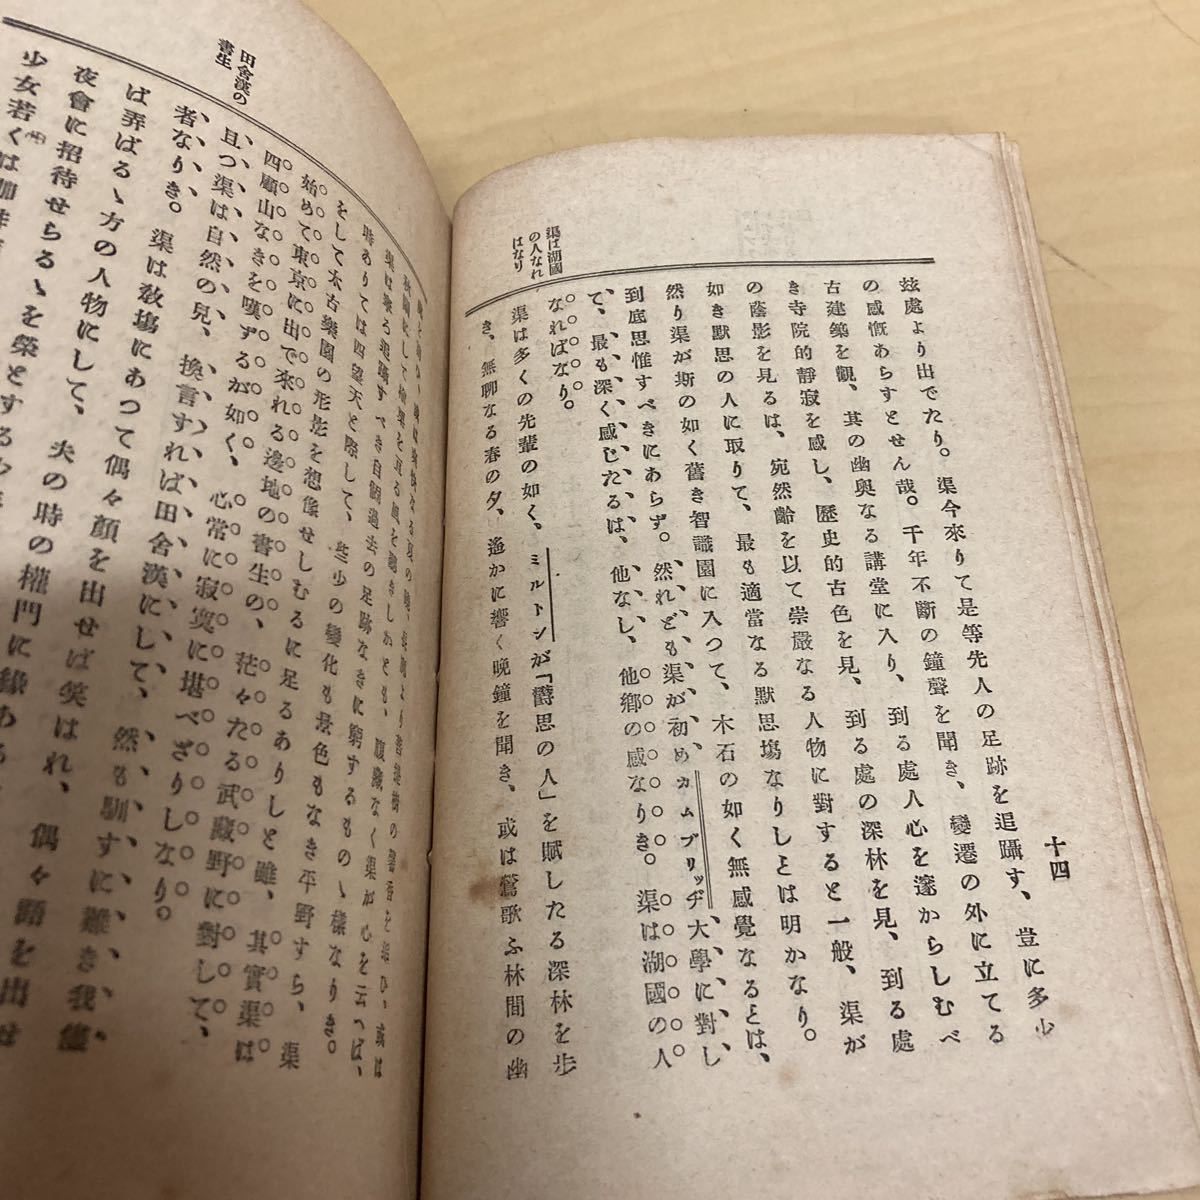 十四
玆處より出でたり。渠今來りて是等先人の足跡を追躡す、豈に多少
の感慨あらずとせん哉。千年不斷の鐘聲を聞き、變遷の外に立てる
古建築を觀、其の幽奧なる講堂に入り、到る處人心を邃からしむべ
き寺院的靜寂を感し、歷史的古色を見、到る處の深林を見、到る處
の蔭影を見るは、宛然齡を以て崇嚴なる人物に對すると一般、渠が
如き默思の人に取りて、最も適當なる默思塲なりしとは明かなり。
然り渠が斯の如く舊き智識園に入つて、木石の如く無感覺なるとは、
到底思惟すべきにあらず。然れども渠が初めカムブリッヂ大學に對し
て、最も深く感じたるは、他なし、他鄕の感なりき。渠は湖國の人
なればなり。
渠は湖國
の人なれ
ばなり
渠は多くの先輩の如く、ミルトンが「欝思の人」を賦したる深林を步
き、無聊なる春の夕、遙かに響く晚鐘を聞き、或は鶯歌ふ林間の幽
時ありては四望天と際して、些少の變化も景色もなき平野すら、渠
をして太古樂園の形影を想像せしむるに足るありしと雖、其實渠は
始めて東京に出で來れる邊地の書生の、茫々たる武藏野に對して、
四顧山なきを嘆ずるが如く、心常に寂寞に堪へざりしなり。
田舍漢の
書生
且つ渠は自然の兒、換言すれば田舍漢にして、然も馴すに難き我儘
者なりき。渠は敎塲にあつて偶々顏を出せば笑はれ、偶々語を出せ
ば弄ばるゝ方の人物にして、夫の時の權門に緣ある
夜會に招待せらるゝを榮とする
少女若くは